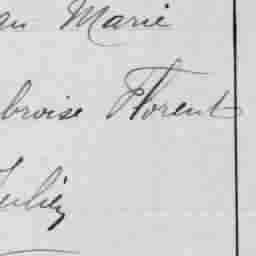 an Marie
broise Florent
Julien